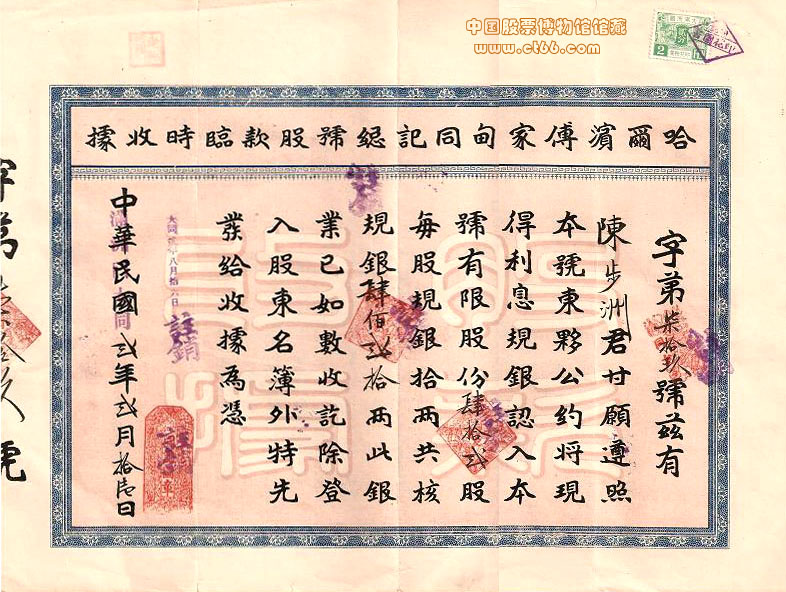 中国股票博物馆馆藏
www.ct66.com
2
哈爾濱傅家甸同記總號股款臨時收據
字第柒拾玖號茲有
陳步洲君甘願遵照
本號東夥公約將現
得利息規銀認入本
號有限股份肆拾弍股
每股規銀拾兩共核
規銀肆佰弍拾兩此銀
業已如數收訖除登
入股東名簿外特先
發給收據為憑
大同 年八月拾六日
註銷
中華民國弍年弍月拾壹日
字第
號